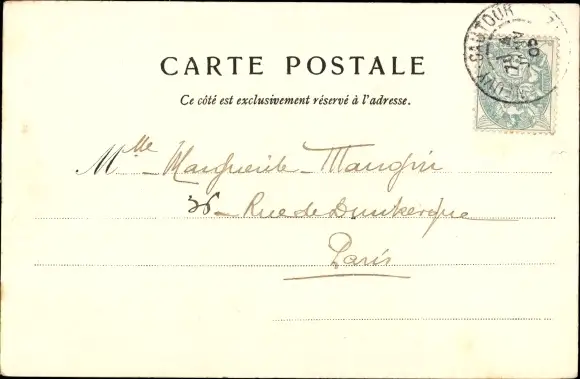 CARTE POSTALE
Ce côté est exclusivement réservé à l'adresse.
Mlle Marguerite Mangin
36 Rue de Dunkerque
Paris